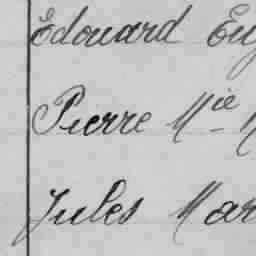 Edouard Eug
Pierre Mie
Jules Mar